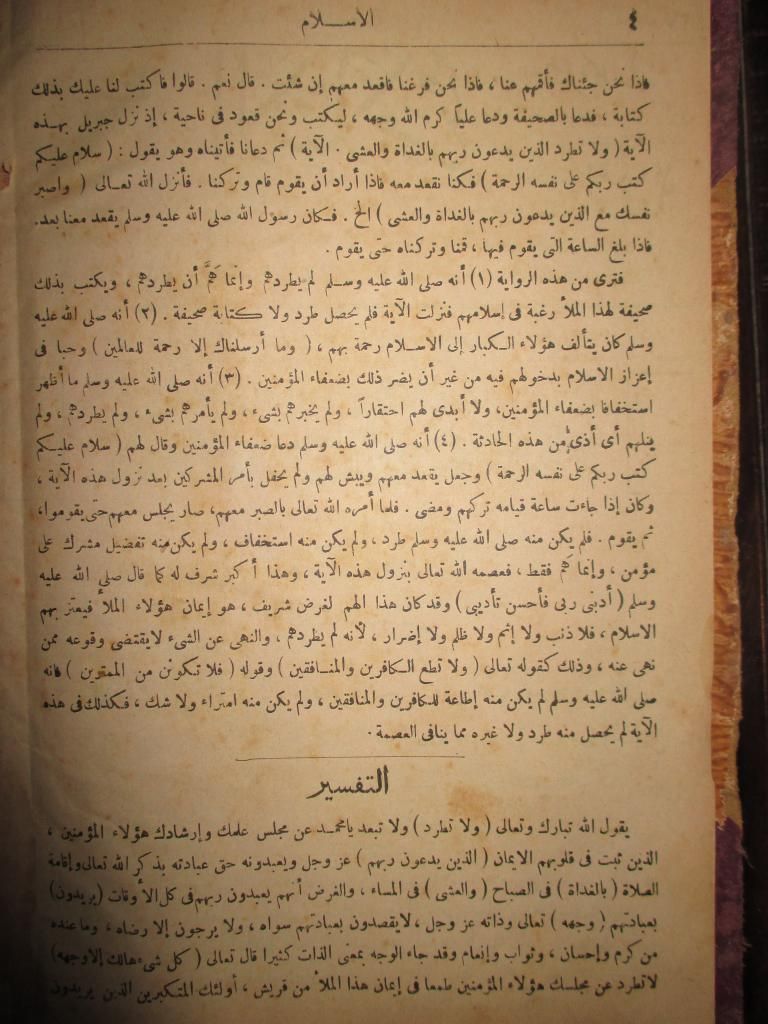 ٤
الاســـلام
فاذا نحن جئناك فأقمهم عنا ، فاذا نحن فرغنا فاقعد معهم إن شئت . قال نعم . قالوا فاكتب لنا عليك بذلك
كتابة ، فدعا بالصحيفة ودعا علياً كرم الله وجهه ، ليكتب ونحن قعود فى ناحية ، إذ نزل جبريل بهــذه
الآية ( ولا تطرد الذين يدعون ربهم بالغداة والعشى . الآية ) ثم دعانا فأتيناه وهو يقول : ( سلام عليكم
كتب ربكم على نفسه الرحمة ) فكنا نقعد معه فاذا أراد أن يقوم قام وتركنا . فأنزل الله تعــالى ( واصبر
نفسك مع الذين يدعون ربهم بالغداة والعشى ) الخ . فـكان رسول الله صلى الله عليه وسلم يقعد معنا بعد.
فاذا بلغ الساعة التى يقوم فيها ، قمنا وتركناه حتى يقوم .
فترى من هذه الرواية (١) أنه صلى الله عليه وســلم لم يطردهم وإنما هَمَّ أن يطردهم ، ويكتب بذلك
صحيفة لهذا الملأ رغبة فى إسلامهم فنزلت الآية فلم يحصل طرد ولا كــتابة صحيفة . (٢) أنه صلى الله عليه
وسلم كان يتألف هؤلاء الـكبار إلى الاســلام رحمة بهم ، ( وما أرسلناك إلا رحمة للعالمين ) وحبا فى
إعزاز الاسلام بدخولهم فيه من غير أن يضر ذلك بضعفاء المؤمنين . (٣) أنه صلى الله عليه وسلم ما أظهر
استخفافا بضعفاء المؤمنين، ولا أبدى لهم احتقاراً ، ولم يخبرهم بشىء ، ولم يأمرهم بشىء ، ولم يطردهم ، ولم
ينلهم أى أذى من هذه الحادثة . (٤) أنه صلى الله عليه وسلم دعا ضعفاء المؤمنين وقال لهم ( سلام عليـكم
كتب ربكم على نفسه الرحمة ) وجعل يقعد معهم ويبش لهم ولم يحفل بأمر المشركين بعد نزول هذه الآية ،
وكان إذا جاءت ساعة قيامه تركهم ومضى . فلما أمره الله تعالى بالصبر معهم، صار يجلس معهم حتى يقوموا،
ثم يقوم . فلم يكن منه صلى الله عليه وسلم طرد ، ولم يكن منه استخفاف ، ولم يكن منه تفضيل مشرك على
مؤمن ، وإنما هَمَّ فقط ، فعصمه الله تعالى بنزول هذه الآية ، وهذا أكبر شرف له كما قال صلى الله عليه
وسلم ( أدبنى ربى فأحسن تأديبى ) وقد كان هذا الهم لغرض شريف ، هو إيمان هؤلاء الملأ فيعتز بهم
الاسلام ، فلا ذنب ولا إثم ولا ظلم ولا إضرار ، لأنه لم يطردهم ، والنهى عن الشىء لايقتضى وقوعه ممن
نهى عنه ، وذلك كقوله تعالى ( ولا تطع الـكافرين والمنــافقين ) وقوله ( فلا تـكونن من الممترين ) فانه
صلى الله عليه وسلم لم يكن منه إطاعة للـكافرين والمنافقين ، ولم يكن منه امتراء ولا شك ، فـكذلك فى هذه
الآية لم يحصل منه طرد ولا غيره مما ينافى العصمة .
التفسير
يقول الله تبارك وتعالى ( ولا تطرد ) ولا تبعد يامحمــد عن مجلس علمك وإرشادك هؤلاء المؤمنين ،
الذين ثبت فى قلوبهم الايمان ( الذين يدعون ربهم ) عز وجل ويعبدونه حق عبادته بذكر الله تعالى وإقامة
الصلاة ( بالغداة ) فى الصباح ( والعشى ) فى المساء ، والغرض أنهم يعبدون ربهم فى كل الأوقات (يريدون)
بعبادتهم ( وجهه ) تعالى وذاته عز وجل ، لايقصدون بعبادتهم سواه ، ولا يرجون إلا رضاه ، وما عنده
من كرم وإحسان ، وثواب وإنعام وقد جاء الوجه بمعنى الذات كثيرا قال تعالى ( كل شىء هالك إلا وجهه)
لاتطرد عن مجلسك هؤلاء المؤمنين طمعا فى إيمان هذا الملأ من قريش ، أولئك المتـكبرين الذين يريدون